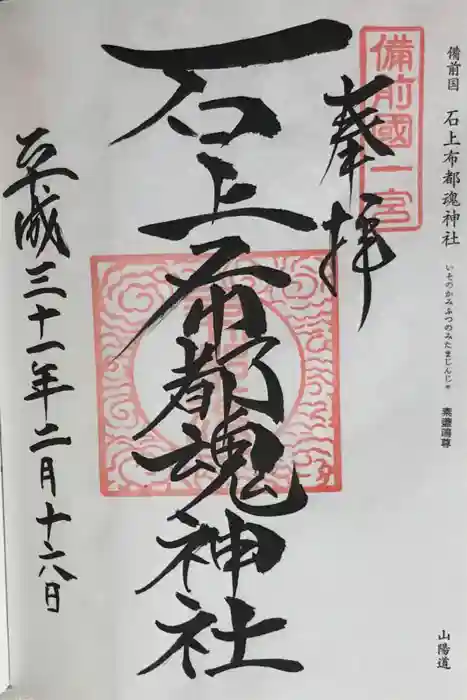 備前国 石上布都魂神社 いそのかみふつのみたまじんじゃ 素盞嗚尊 山陽道
備前國一宮
奉拝
石上布都魂神社
平成三十一年二月十六日